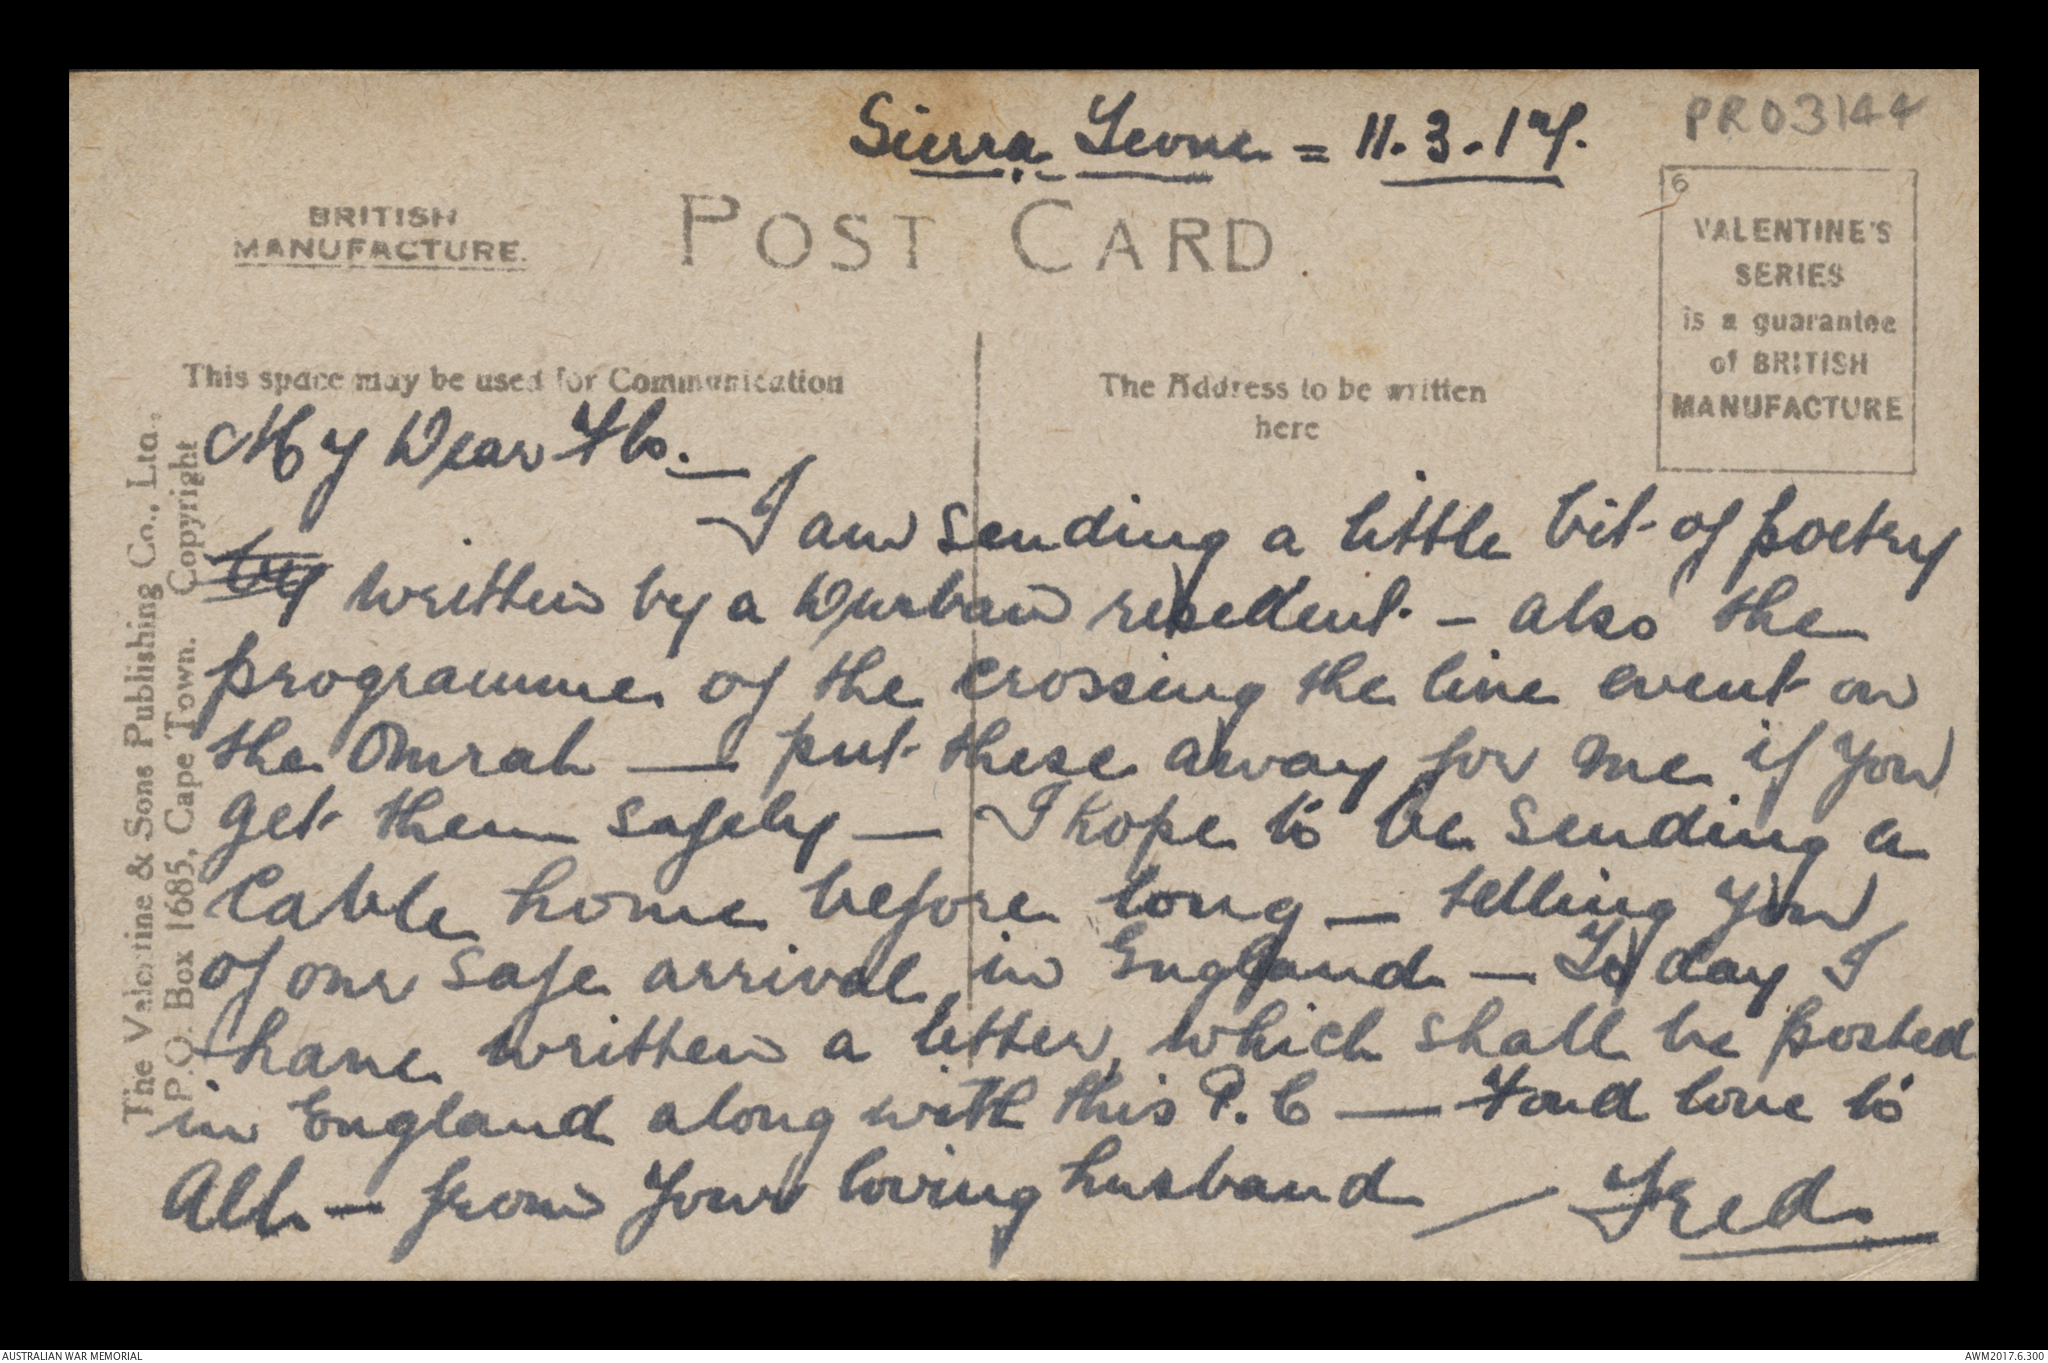 Sierra Leone = 11.3.17.
PR03144
BRITISH
MANUFACTURE.
POST CARD
6
VALENTINE'S
SERIES
is a guarantee
of BRITISH
MANUFACTURE
This space may be used for Communication
The Address to be written
here
The Valentine & Sons Publishing Co., Ltd.,
P.O. Box 1685, Cape Town. Copyright
My Dear Flo. —
I am sending a little bit of poetry
by written by a Durban resedent - also the
programme of the crossing the line event on
the Omrah — put these away for me if you
get them safely — I hope to be sending a
Cable home before long — telling you
of our safe arrival in England — To day I
have written a letter, which shall be posted
in England along with this P.C — Fond love to
All — from Your loving husband
Fred.
AUSTRALIAN WAR MEMORIAL
AWM2017.6.300